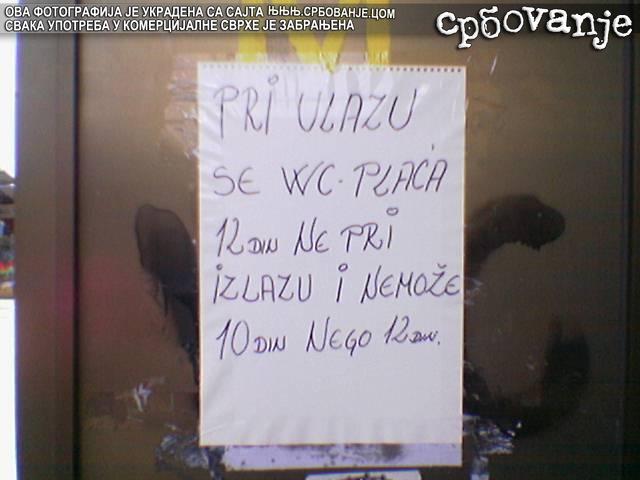 ОВА ФОТОГРАФИЈА ЈЕ УКРАДЕНА СА САЈТА ЊЊЊ.СРБОВАЊЕ.ЦОМ
СВАКА УПОТРЕБА У КОМЕРЦИЈАЛНЕ СВРХЕ ЈЕ ЗАБРАЊЕНА
србовање
M
PRI ULAZU
SE WC-PLAĆA
12 DIN NE PRI
IZLAZU I NEMOŽE
10 DIN NEGO 12 DIN.